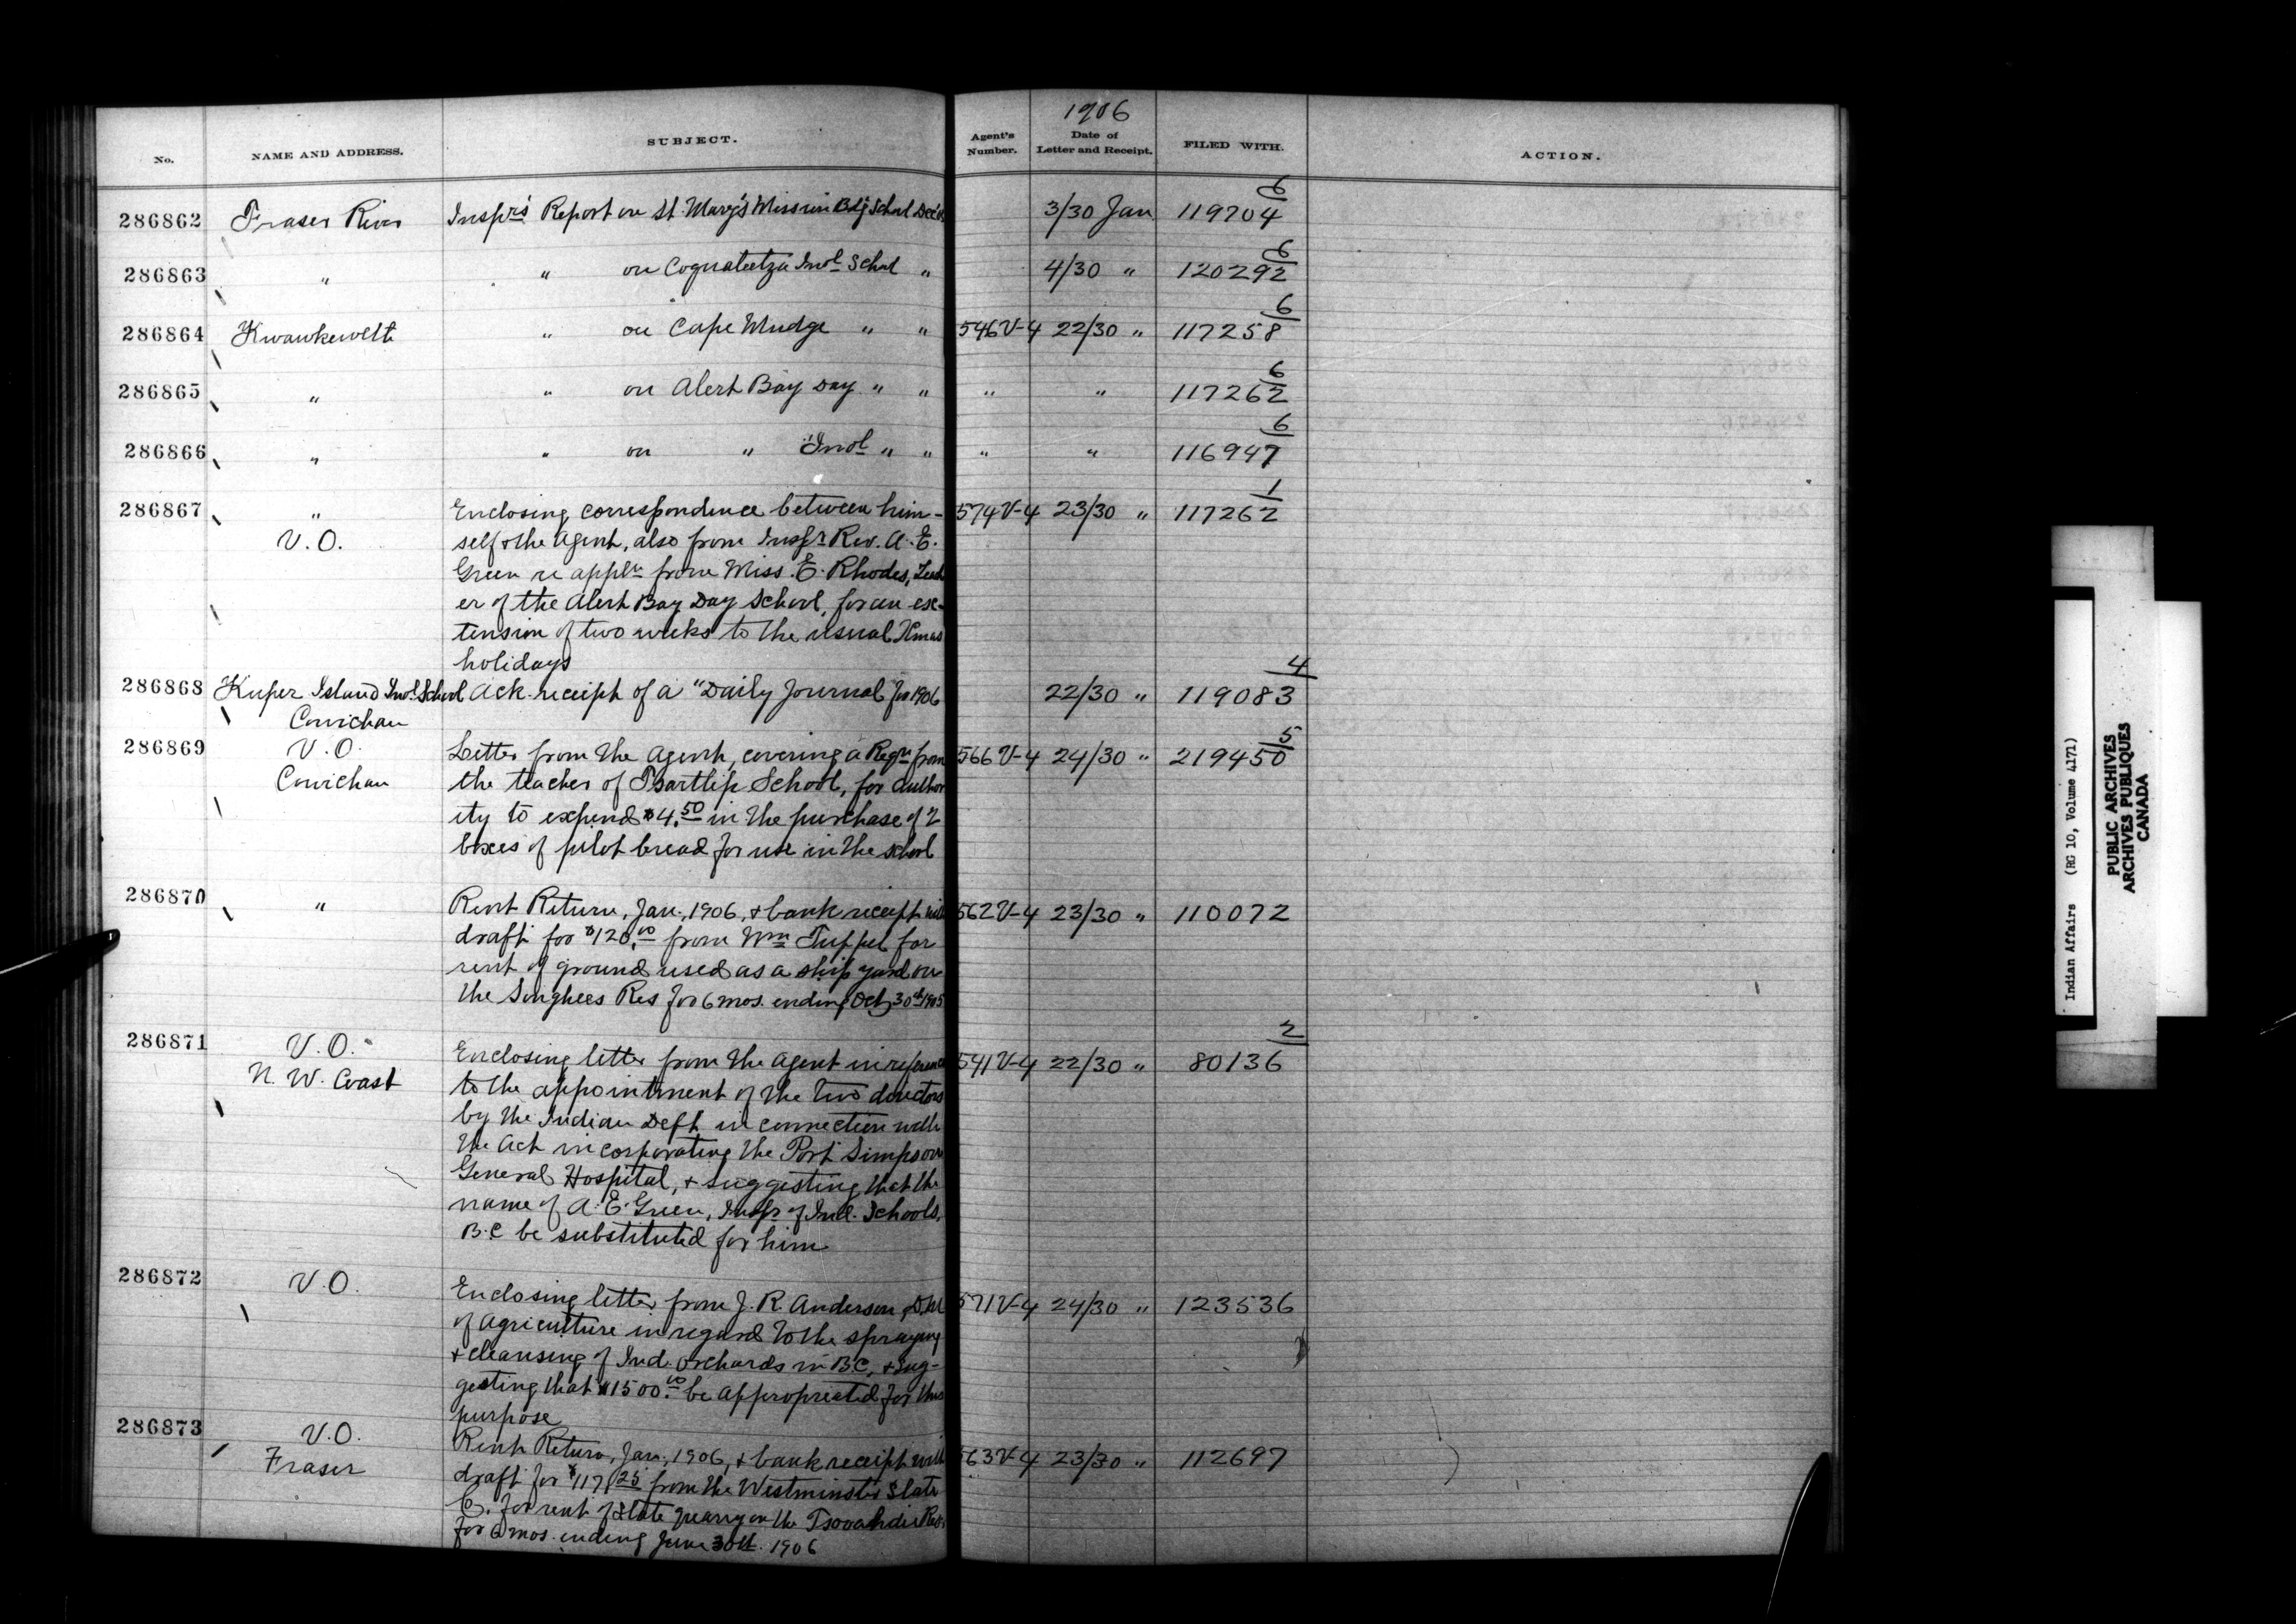 1906
No. NAME AND ADDRESS. SUBJECT. Agent's Number. Date of Letter and Receipt. FILED WITH. ACTION.
286862 Fraser River Inspr's Report on St. Mary's Mission Bdg School Dec'05 3/30 Jan 119704 6
286863 " " on Coqualeetza Indl School " 4/30 " 120292 6
286864 Kwawkewlth " on Cape Mudge " " 546 V-4 22/30 " 117258 6
286865 " " on Alert Bay Day " " " " 117262 6
286866 " " on " Indl " " " " 116947 6
286867 " Enclosing correspondence between him- 574 V-4 23/30 " 117262 1
V.O. self & the Agent, also from Inspr Rev. A. E.
Green re appln from Miss. E. Rhodes, Teach
er of the Alert Bay Day School, for an ex-
tension of two weeks to the usual Xmas
holidays
286868 Kuper Island Indl School Ack. receipt of a "Daily Journal" for 1906 22/30 " 119083 4
Cowichan
286869 V.O. Letter from the Agent, covering a Reqn from 566 V-4 24/30 " 219450 5
Cowichan the teacher of Tsartlip School, for author
ity to expend $4.50 in the purchase of 2
boxes of pilot bread for use in the school
286870 " Rent Return, Jan., 1906, & bank receipt with 562 V-4 23/30 " 110072
draft for $120.00 from Wm Tuppel for
rent of ground used as a ship yard on
the Songhees Res for 6 mos. ending Oct 30th 1905
286871 V.O. Enclosing letter from the Agent in reference 541 V-4 22/30 " 80136 2
N. W. Coast to the appointment of the two directors
by the Indian Dept in connection with
the Act incorporating the Port Simpson
General Hospital, & suggesting that the
name of A. E. Green, Inspr of Ind. Schools,
B.C be substituted for him
286872 V.O. Enclosing letter from J. R. Anderson, D.M 571 V-4 24/30 " 123536
of Agriculture in regard to the spraying
& cleansing of Ind. orchards in B.C, & sug-
gesting that $1500.00 be appropreated for this
purpose
286873 V.O. Rent Return, Jan., 1906, & bank receipt with 563 V-4 23/30 " 112697
Fraser draft for $117.25 from the Westminster Slate
Co. for rent of slate quarry on the Tsooahdie Res.
for 6 mos. ending June 30th. 1906
Indian Affairs (RG 10, Volume 4171)
PUBLIC ARCHIVES
ARCHIVES PUBLIQUES
CANADA